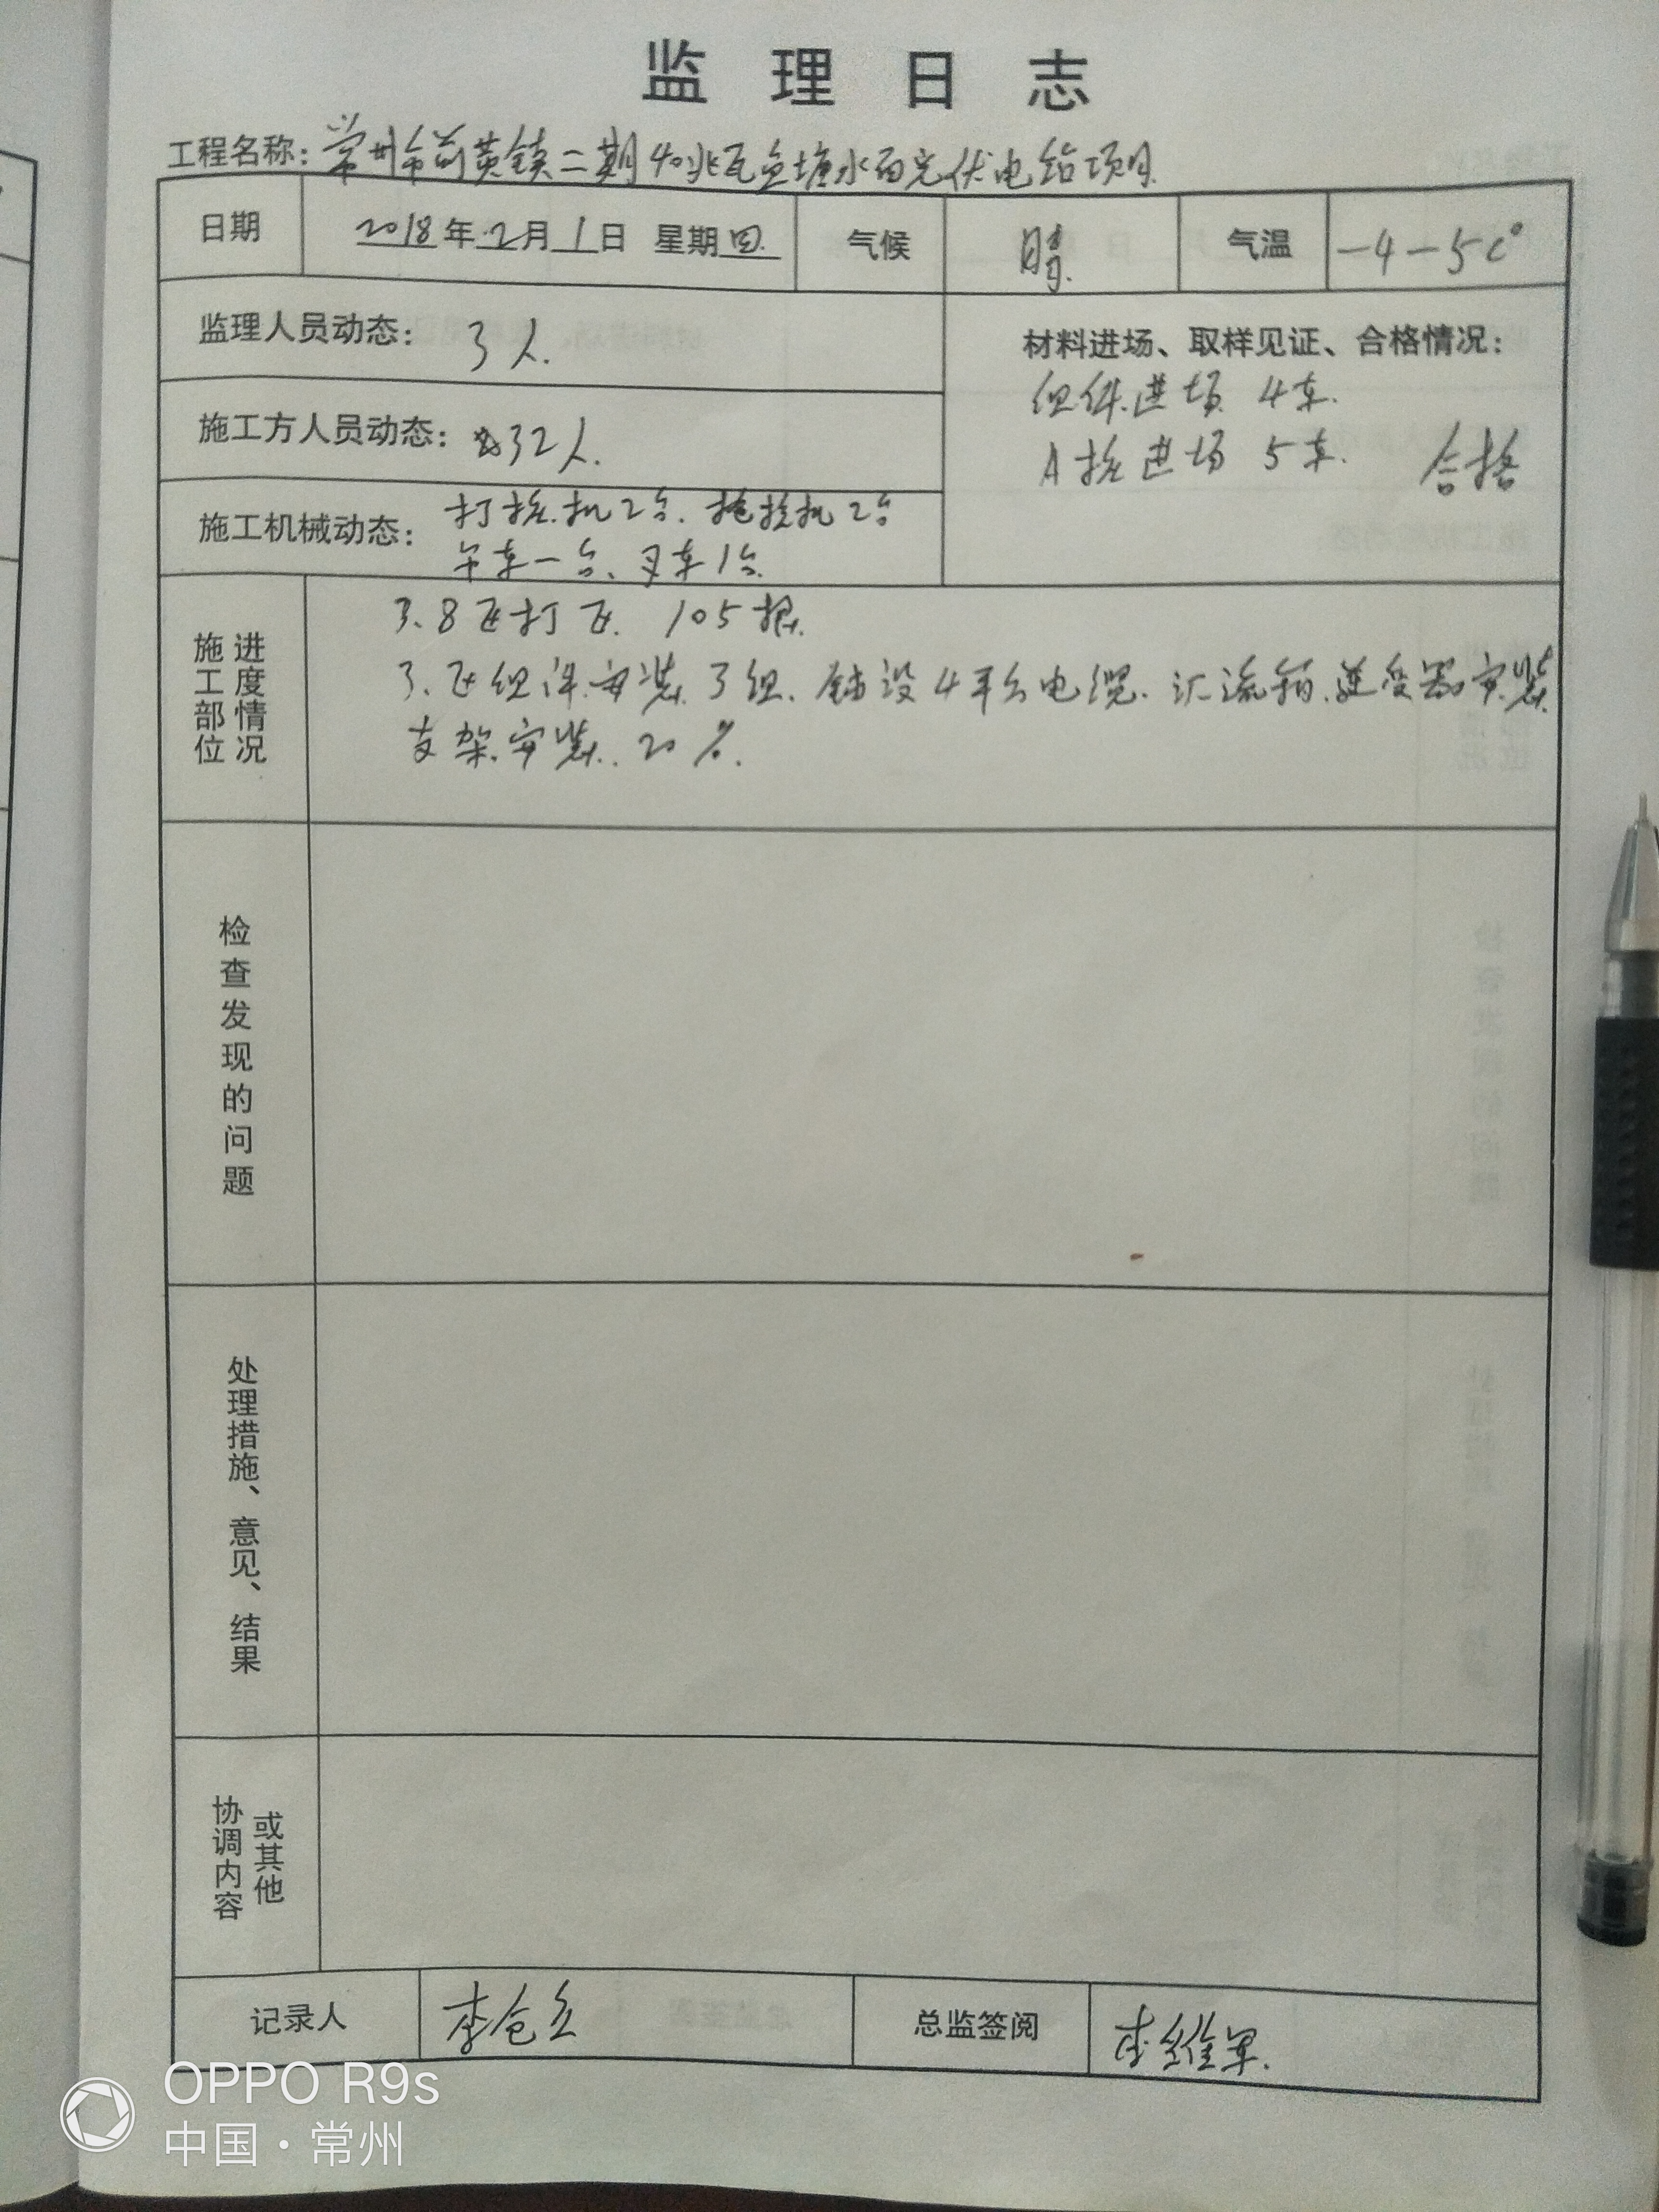 监理日志
工程名称：常州市前黄镇二期40兆瓦鱼塘水面光伏电站项目
日期 2018年2月1日 星期四 气候 晴 气温 -4-5C°
监理人员动态： 3人.
材料进场、取样见证、合格情况：
组件进场 4车.
A桩进场 5车. 合格
施工方人员动态： 32人.
施工机械动态： 打桩机2台. 拖桩机2台
吊车一台、叉车1台.
施工部位
进度情况
3.8区打 105根.
3.区组件安装3组. 铺设4平台电缆. 汇流箱.逆变器安装
支架安装. 20%.
检查发现的问题
处理措施、意见、结果
协调内容
或其他
记录人 李仓 总监签阅 李维军.
OPPO R9s
中国·常州